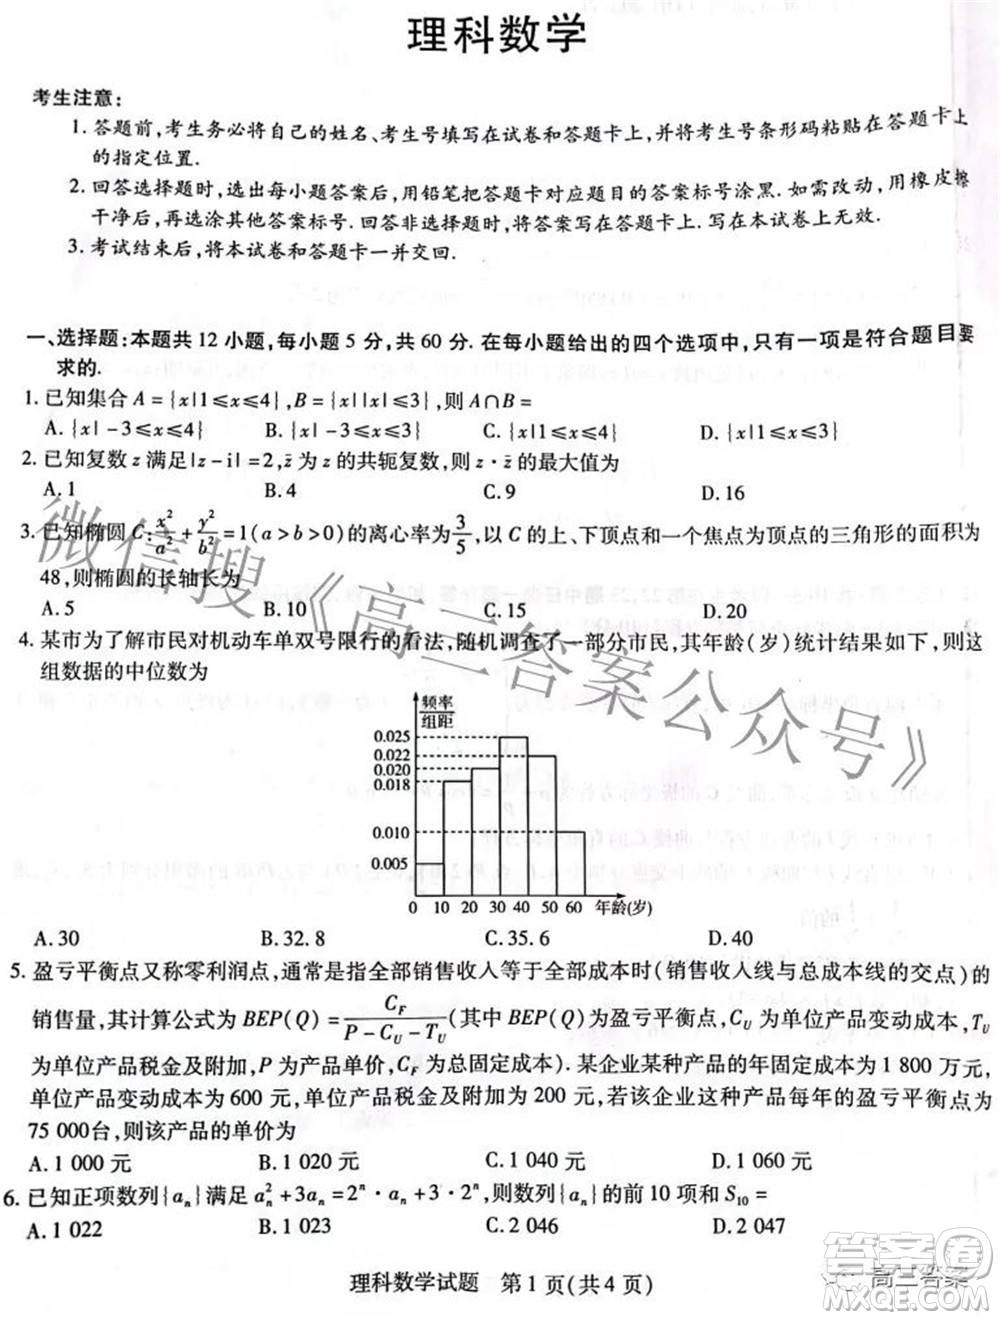 理科数学
考生注意:
1. 答题前,考生务必将自己的姓名、考生号填写在试卷和答题卡上,并将考生号条形码粘贴在答题卡上
的指定位置.
2. 回答选择题时,选出每小题答案后,用铅笔把答题卡对应题目的答案标号涂黑. 如需改动,用橡皮擦
干净后,再选涂其他答案标号. 回答非选择题时,将答案写在答题卡上. 写在本试卷上无效.
3. 考试结束后,将本试卷和答题卡一并交回.
一、选择题:本题共 12 小题,每小题 5 分,共 60 分. 在每小题给出的四个选项中,只有一项是符合题目要
求的.
1. 已知集合 A={x|1≤x≤4},B={x||x|≤3},则 A∩B=
A. {x|-3≤x≤4} B. {x|-3≤x≤3} C. {x|1≤x≤4} D. {x|1≤x≤3}
2. 已知复数 z 满足|z-i|=2,z̄ 为 z 的共轭复数,则 z·z̄ 的最大值为
A. 1 B. 4 C. 9 D. 16
3. 已知椭圆 C: x²/a² + y²/b² =1(a>b>0)的离心率为 3/5,以 C 的上、下顶点和一个焦点为顶点的三角形的面积为
48,则椭圆的长轴长为
A. 5 B. 10 C. 15 D. 20
4. 某市为了解市民对机动车单双号限行的看法,随机调查了一部分市民,其年龄(岁)统计结果如下,则这
组数据的中位数为
频率
组距
0.025
0.022
0.020
0.018
0.010
0.005
0 10 20 30 40 50 60 年龄(岁)
A. 30 B. 32. 8 C. 35. 6 D. 40
5. 盈亏平衡点又称零利润点,通常是指全部销售收入等于全部成本时(销售收入线与总成本线的交点)的
销售量,其计算公式为 BEP(Q)= C_F/(P-C_U-T_U) (其中 BEP(Q)为盈亏平衡点, C_U 为单位产品变动成本, T_U
为单位产品税金及附加, P 为产品单价, C_F 为总固定成本). 某企业某种产品的年固定成本为 1 800 万元,
单位产品变动成本为 600 元,单位产品税金及附加为 200 元,若该企业这种产品每年的盈亏平衡点为
75 000台,则该产品的单价为
A. 1 000 元 B. 1 020 元 C. 1 040 元 D. 1 060 元
6. 已知正项数列{aₙ}满足 aₙ²+3aₙ=2ⁿ·aₙ+3·2ⁿ,则数列{aₙ}的前 10 项和 S₁₀=
A. 1 022 B. 1 023 C. 2 046 D. 2 047
理科数学试题 第 1 页(共 4 页)
微信搜《高三答案公众号》
答案圈
高三答案